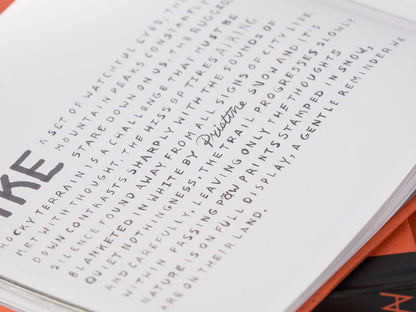 IKE
A SET OF WATCHFUL EYES,
MOUNTAIN PEAKS CONSTANTLY
STARE DOWN ON US. THE RUGGED
ROCKY TERRAIN IS A CHALLENGE THAT MUST BE
MET WITH THOUGHT. THE HISS OF TIRES AIMING
DOWN CONTRASTS SHARPLY WITH THE SOUNDS OF
SILENCE FOUND AWAY FROM ALL SIGNS OF CITY LIFE.
BLANKETED IN WHITE BY Pristine SNOW AND IT'S
QUIET NOTHINGNESS, THE TRAIL PROGRESSES SLOWLY
AND CAREFULLY, LEAVING ONLY THE THOUGHTS
WITHIN PASSING PAW PRINTS STAMPED IN SNOW,
NATURE IS ON FULL DISPLAY, A GENTLE REMINDER WE
ARE ON THEIR LAND.